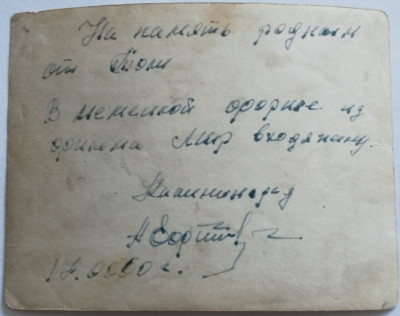 На память родным
от Толи
В немецкой форме из
фильма Мир входящему.
Калининград
17.0060 г.